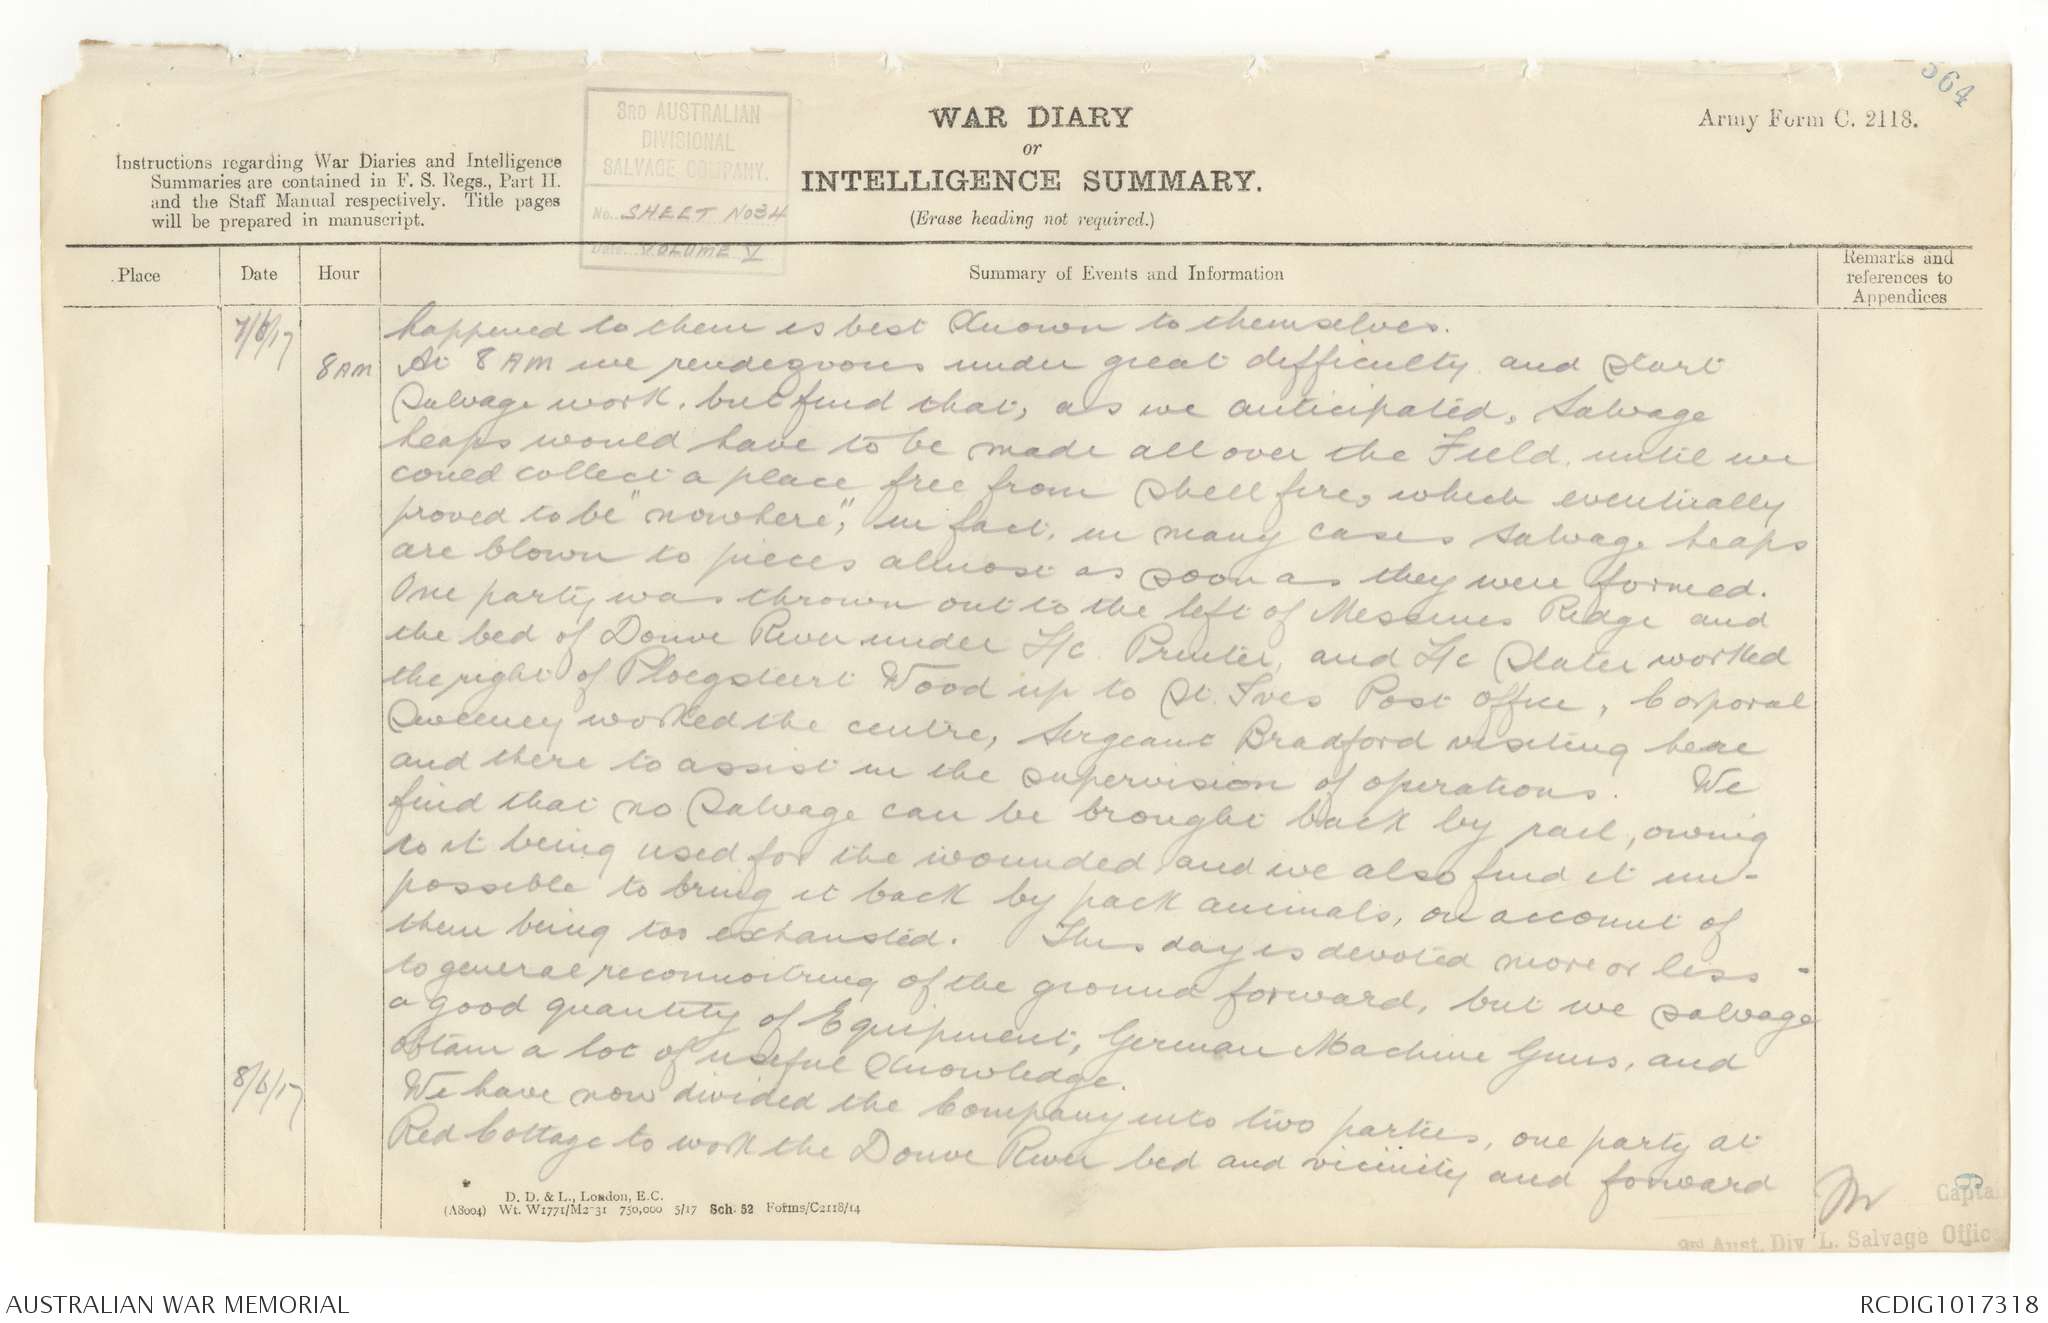 564
3RD AUSTRALIAN
DIVISIONAL
SALVAGE COMPANY.
No. SHEET No 34
Date. VOLUME V
WAR DIARY
or
INTELLIGENCE SUMMARY.
(Erase heading not required.)
Army Form C. 2118.
Instructions regarding War Diaries and Intelligence
Summaries are contained in F. S. Regs., Part II.
and the Staff Manual respectively. Title pages
will be prepared in manuscript.
Place
Date
Hour
Summary of Events and Information
Remarks and
references to
Appendices
7/6/17 happened to them is best known to themselves.
8 AM At 8 AM we rendezvous under great difficulty and start
Salvage work, but find that, as we anticipated, Salvage
heaps would have to be made all over the Field until we
could collect a place free from shell fire, which eventually
proved to be "nowhere"; in fact, in many cases salvage heaps
are blown to pieces almost as soon as they were formed.
One party was thrown out to the left of Messines Ridge and
the bed of Douve River under L/c Printer, and L/c Slater worked
the right of Ploegsteert Wood up to St. Ives Post Office, Corporal
Sweeney worked the centre, Sergeant Bradford visiting here
and there to assist in the supervision of operations. We
find that no Salvage can be brought back by rail, owing
to it being used for the wounded and we also find it im-
possible to bring it back by pack animals, on account of
them being too exhausted. This day is devoted more or less
to general reconnoitring of the ground forward, but we salvage
a good quantity of Equipment, German Machine Guns, and
obtain a lot of useful knowledge.
8/6/17 We have now divided the Company into two parties, one party at
Red Cottage to work the Douve River bed and vicinity and forward
D. D. & L., London, E.C.
(A8004) Wt. W1771/M2-31 750,000 5/17 Sch. 52 Forms/C2118/14
Captain
3rd Aust. Div L. Salvage Office
AUSTRALIAN WAR MEMORIAL
RCDIG1017318